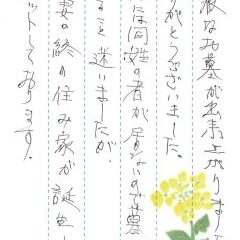 派なお墓が出来上がりま
がとうございました。
には同姓の者が居ないので墓
ること迷いましたが、
妻の終の住み家が誕生し
ットしております。